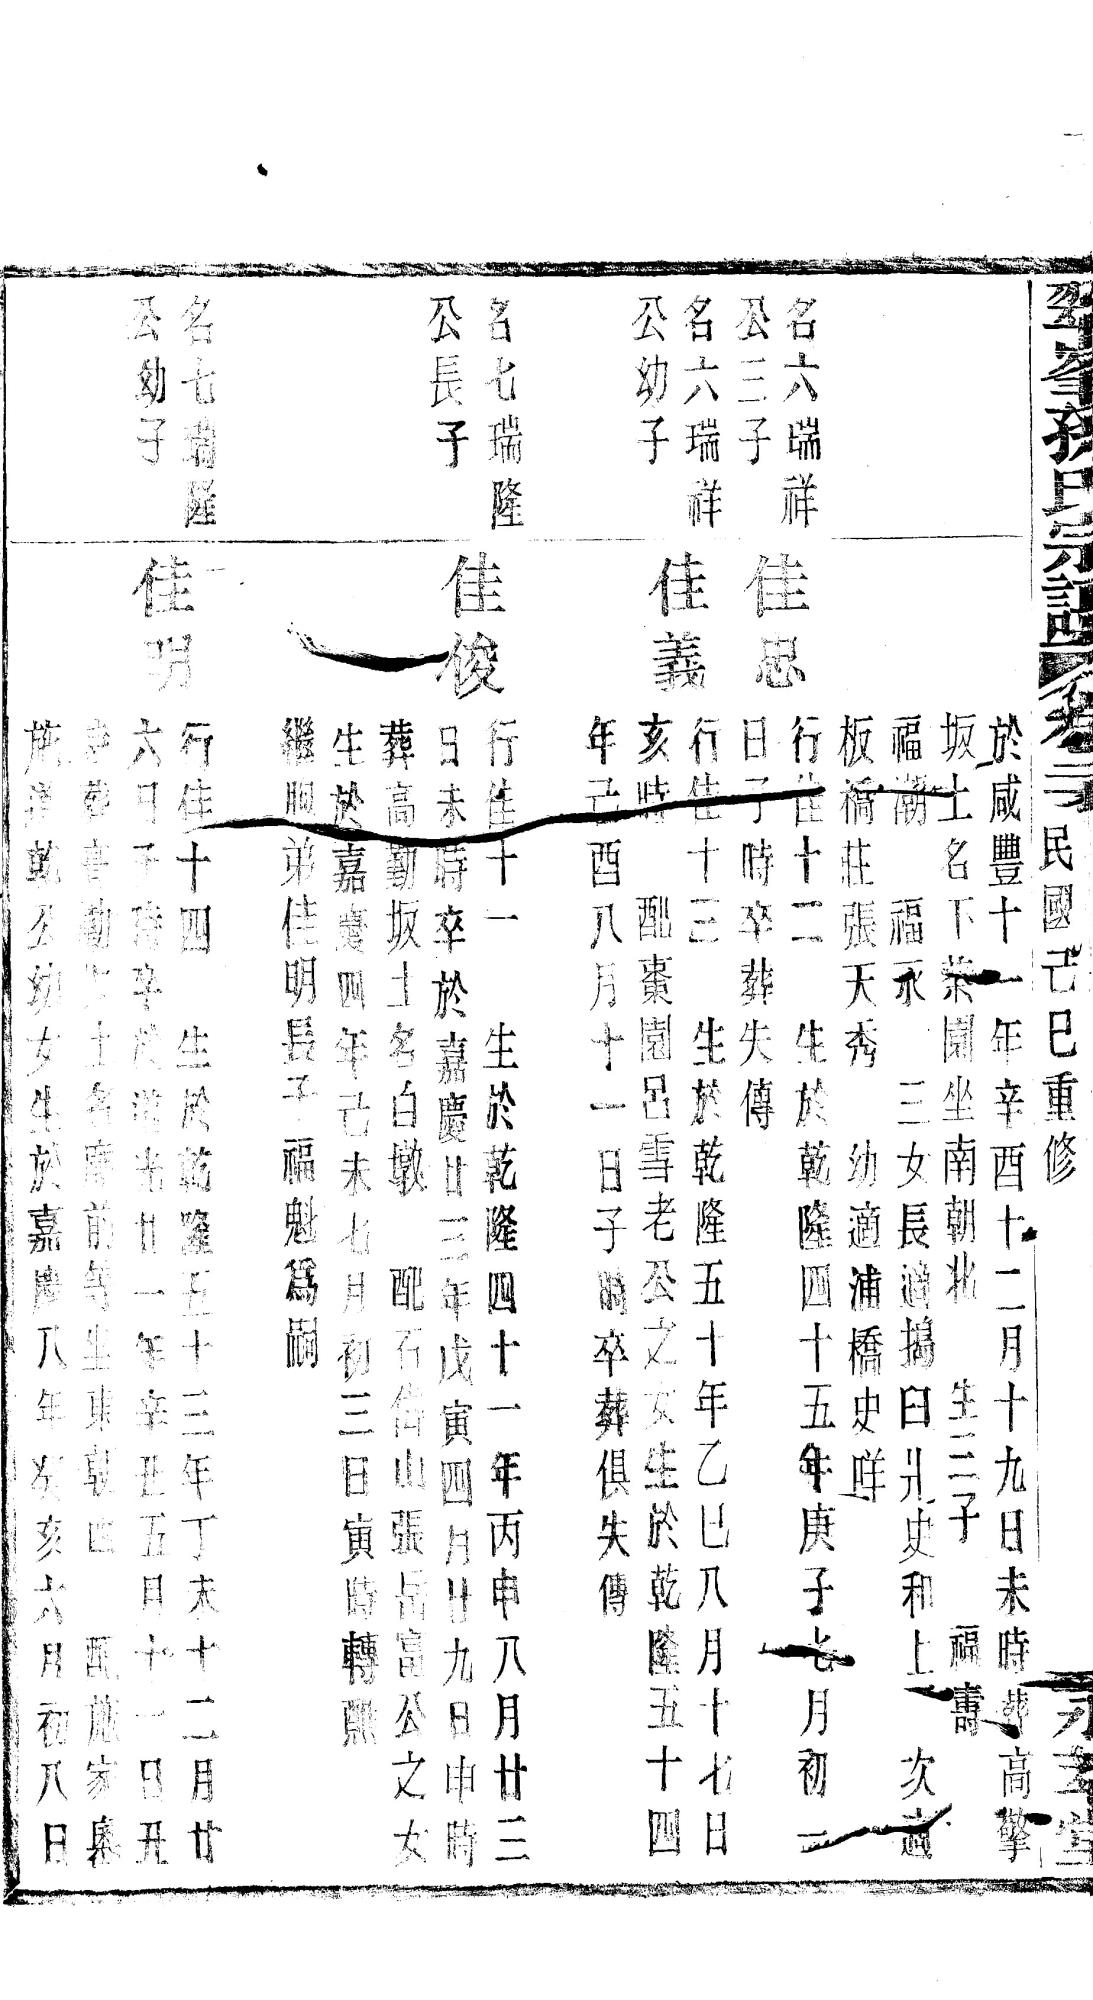 孫氏宗譜卷二 民國己巳重修
於咸豐十一年辛酉十二月十九日未時葬高擎
坂土名下菜園坐南朝北 生三子 福壽
福潮 福永 三女長適搗臼爿史和上 次適
板橋莊張天秀 幼適浦橋史咩
名六瑞祥
公三子
佳思
行佳十二 生於乾隆四十五年庚子七月初一
日子時卒葬失傳
名六瑞祥
公幼子
佳義
行佳十三 生於乾隆五十年乙巳八月十七日
亥時 配棗園呂雪老公之女生於乾隆五十四
年己酉八月十一日子時卒葬俱失傳
名七瑞隆
公長子
佳俊
行佳十一 生於乾隆四十一年丙申八月廿三
日未時卒於嘉慶廿三年戊寅四月廿九日申時
葬高勤坂土名白墩 配石倚山張岳富公之女
生於嘉慶四年己未七月初三日寅時轉熙
繼胞弟佳明長子福魁爲嗣
名七瑞隆
公幼子
佳明
行佳十四 生於乾隆五十三年丁未十二月廿
六日子時卒於道光廿一年辛丑五月十一日丑
時葬高勤坂土名廟前等坐東朝西 配施家
施漢乾公幼女生於嘉慶八年癸亥六月初八日